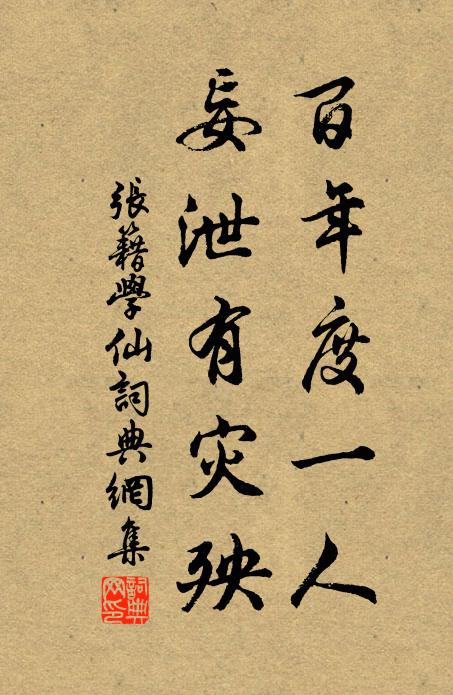 百年度一人
妄泄有灾殃
張籍學仙詞典網集
詞典網印